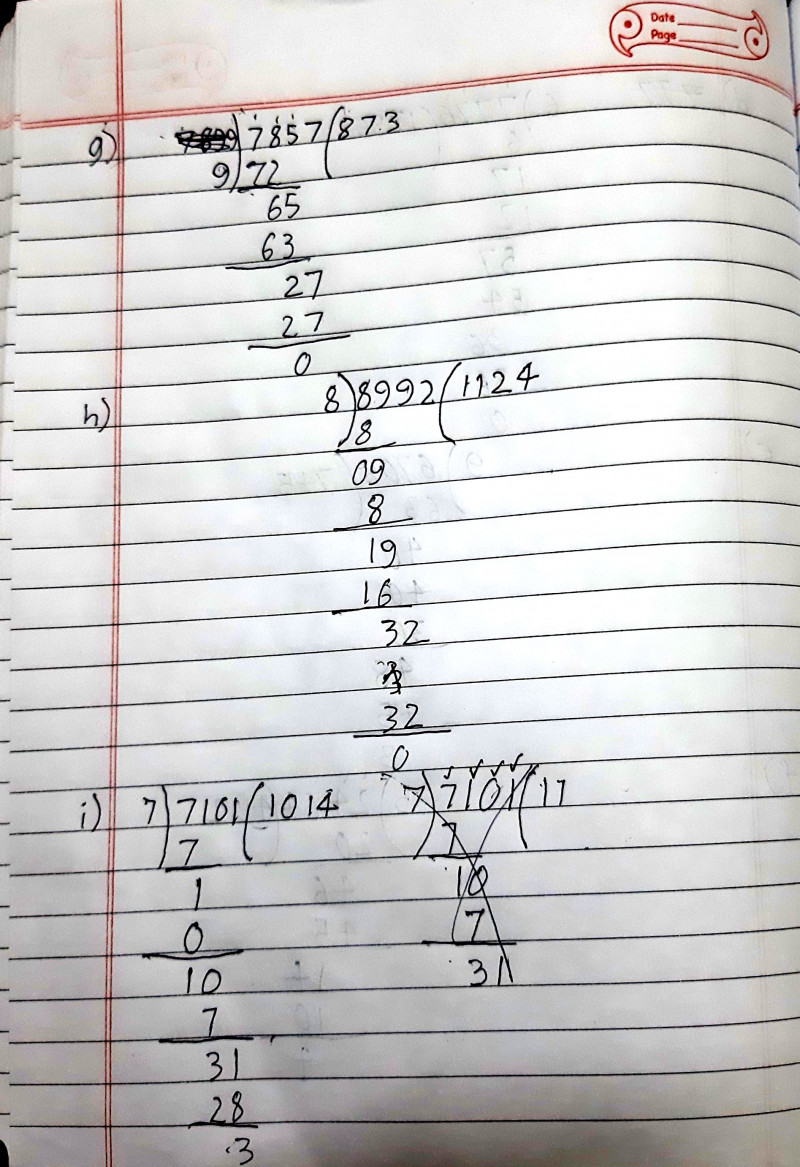 Date
Page
g) 9)7857(873
72
65
63
27
27
0
h) 8)8992(1124
8
09
8
19
16
32
32
0
i) 7)7101(1014 7)7101(11
7 7
1 10
0 7
10 31
7
31
28
3